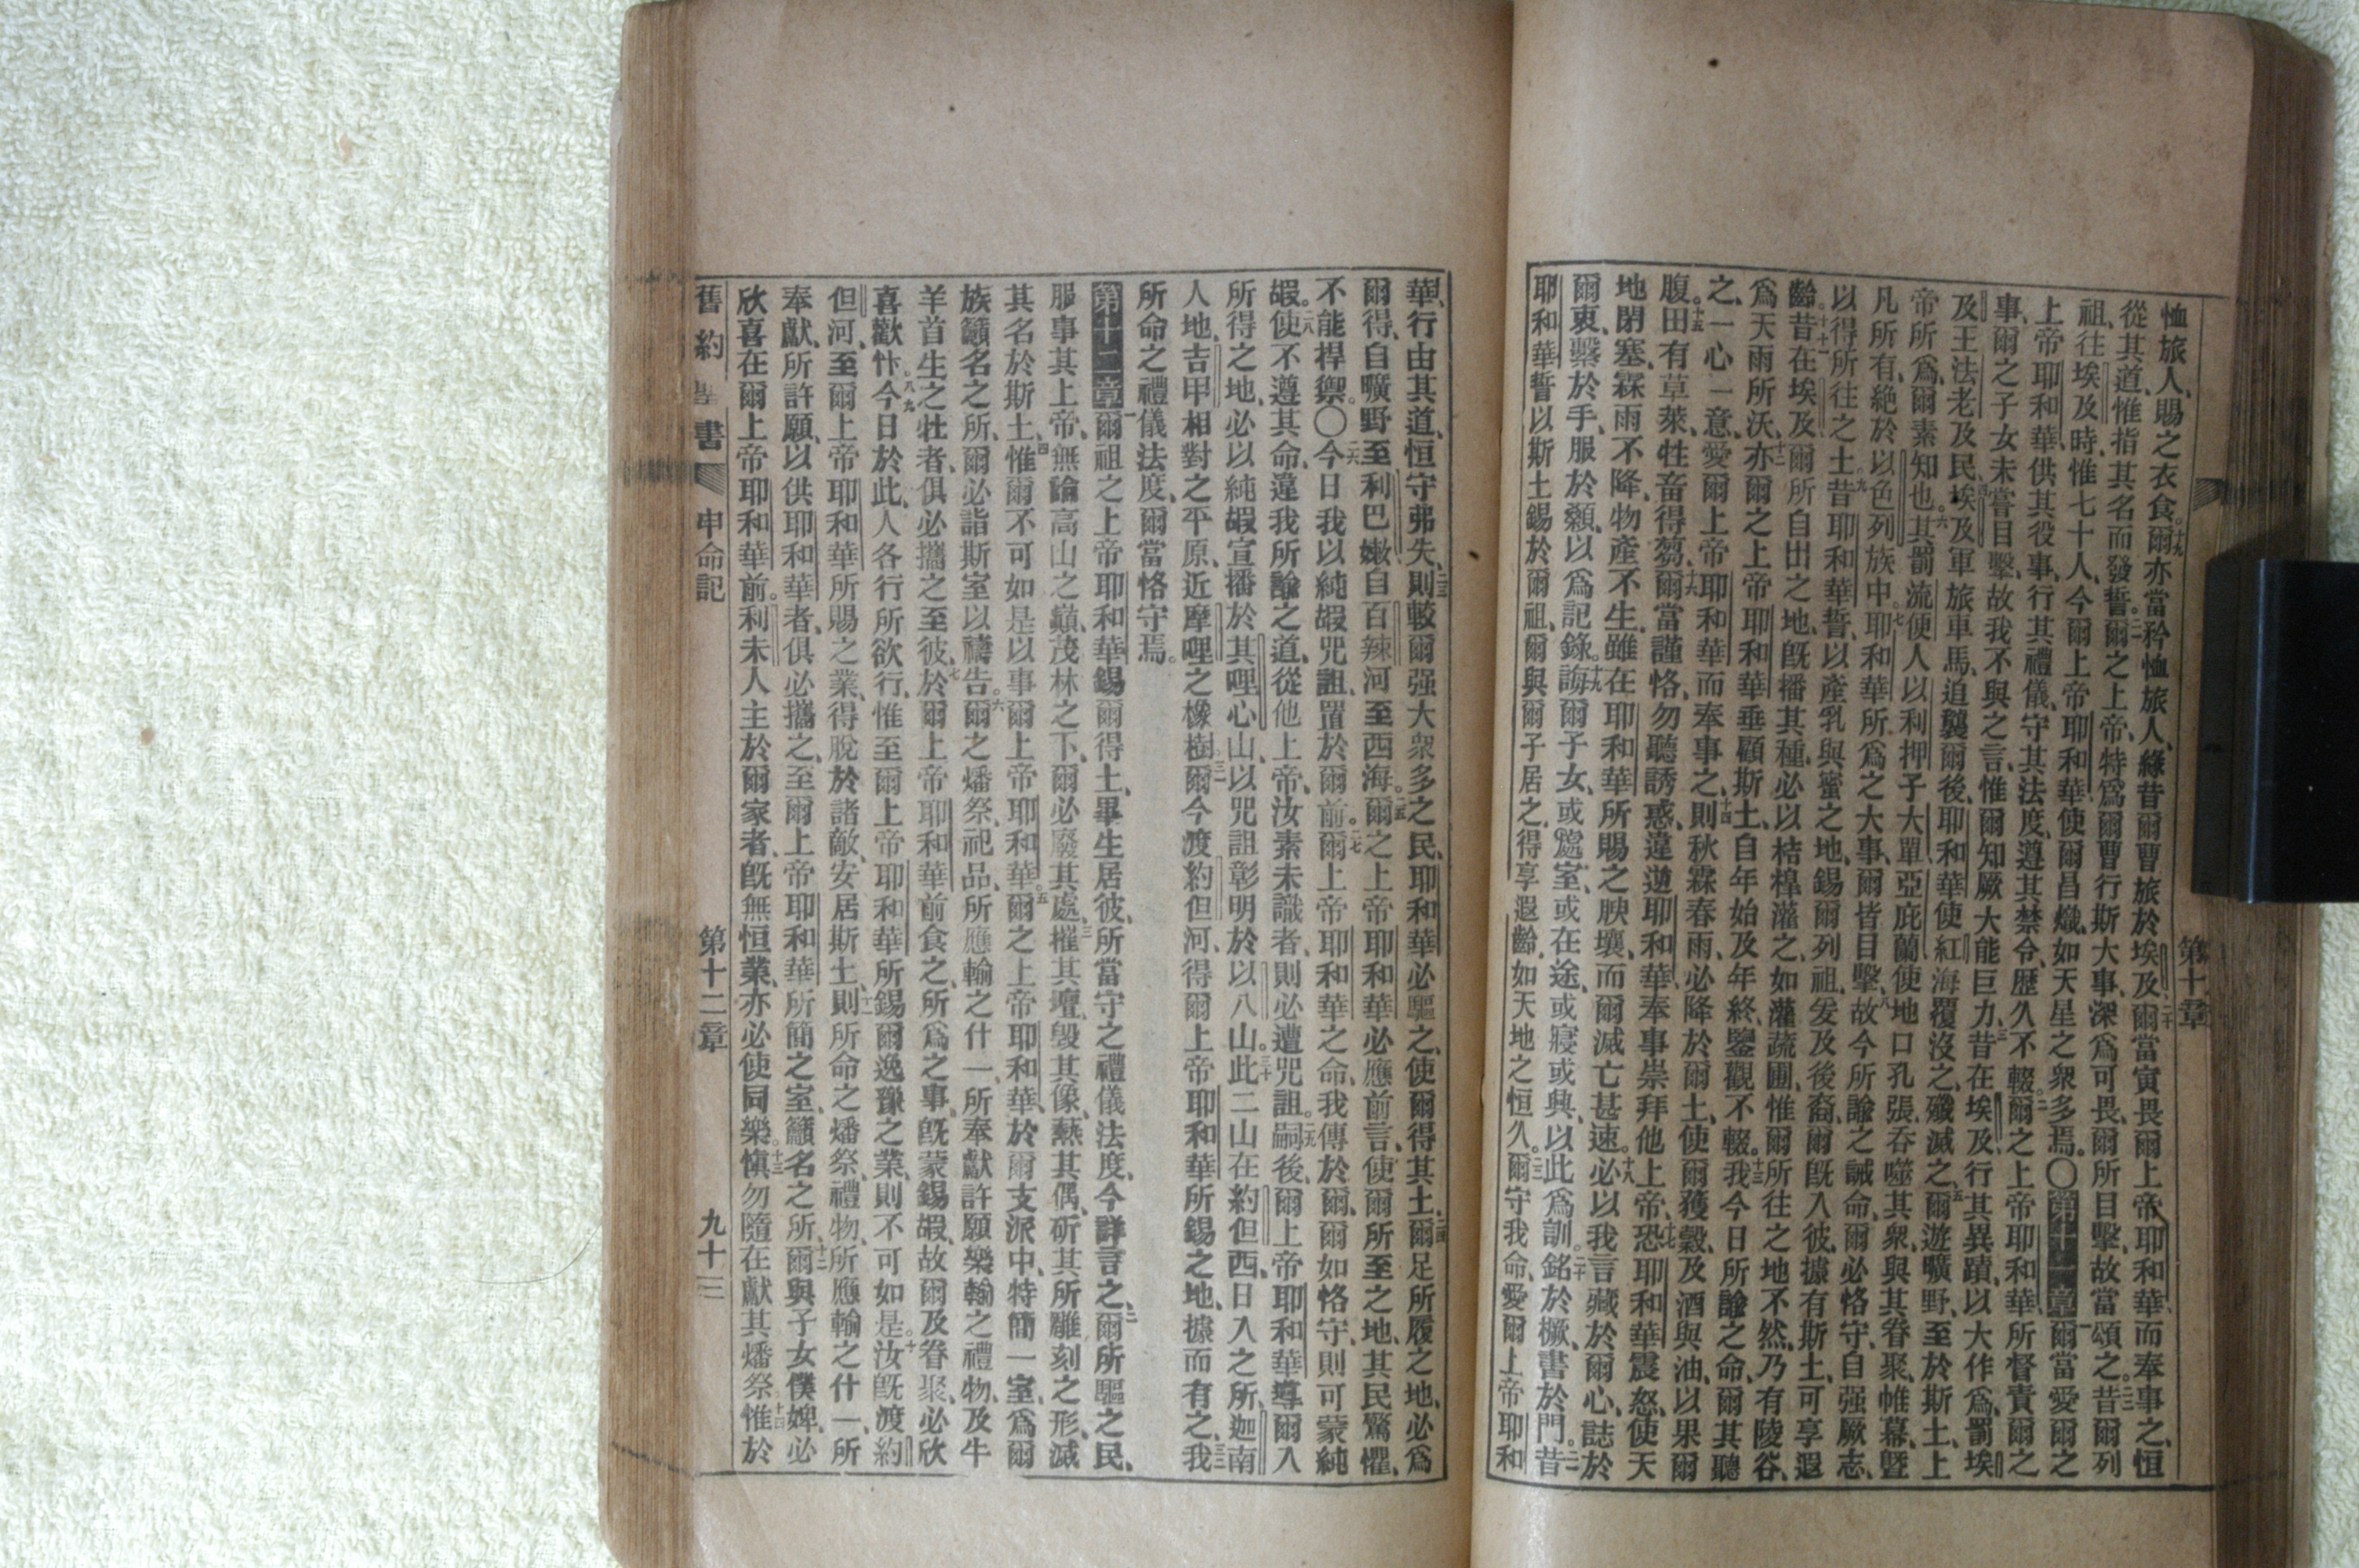 恤旅人、賜之衣食。十九爾亦當矜恤旅人、緣昔爾曹旅於埃及、二十爾當寅畏爾上帝耶和華而奉事之、恒
從其道、惟指其名而發誓。二一爾之上帝、特爲爾曹行斯大事、深爲可畏、爾所目擊、故當頌之。二二昔爾列
祖、往埃及時、惟七十人、今爾上帝耶和華使爾昌熾、如天星之衆多焉。〇第十一章一爾當愛爾之
上帝耶和華、供其役事、行其禮儀、守其法度、遵其禁令、歷久不輟。二爾之上帝耶和華所督責爾之
事、爾之子女未嘗目擊、故我不與之言、惟爾知厥大能巨力、三昔在埃及行其異蹟、以大作爲、罰埃
及王法老及民、四埃及軍旅車馬、追襲爾後、耶和華使紅海覆沒之、殲滅之、五爾遊曠野、至於斯土、上
帝所爲、爾素知也。六其罰流便人以利押子大單、亞庇蘭、使地口孔張、吞噬其衆、與其眷聚、帷幕、曁
凡所有、絶於以色列族中。七耶和華所爲之大事、爾皆目擊、八故今所諭之誡命、爾必恪守、自强厥志、
以得所往之土。九昔耶和華誓、以產乳與蜜之地、錫爾列祖、爰及後裔、爾旣入彼、據有斯土、可享遐
齡。十昔在埃及、爾所自出之地、旣播其種、必以桔槹灌之、如灌蔬圃、惟爾所往之地不然、十一乃有陵谷、
爲天雨所沃、十二亦爾之上帝耶和華垂顧斯土、自年始及年終、鑒觀不輟。十三我今日所諭之命、爾其聽
之、一心一意、愛爾上帝耶和華而奉事之、十四則秋霖春雨、必降於爾土、使爾獲穀、及酒與油、以果爾
腹。十五田有草萊、牲畜得芻、十六爾當謹恪、勿聽誘惑、違逆耶和華、奉事崇拜他上帝、十七恐耶和華震怒、使天
地閉塞、霖雨不降、物產不生、雖在耶和華所賜之腴壤、而爾滅亡甚速。十八必以我言藏於爾心、誌於
爾衷、繫於手、服於顙、以爲記錄。十九誨爾子女、或處室、或在途、或寢或興、以此爲訓。二十銘於橛、書於門。二一昔
耶和華誓以斯土錫於爾祖、爾與爾子居之、得享遐齡、如天地之恒久。二二爾守我命、愛爾上帝耶和
第十章
華、行由其道、恒守弗失、二三則較爾强大衆多之民、耶和華必驅之、使爾得其土、二四爾足所履之地、必爲
爾得、自曠野至利巴嫩、自百辣河至西海。二五爾之上帝耶和華必應前言、使爾所至之地、其民驚懼、
不能捍禦。〇二六今日我以純嘏咒詛、置於爾前。二七爾上帝耶和華之命、我傳於爾、爾如恪守、則可蒙純
嘏。二八使不遵其命、違我所諭之道、從他上帝、汝素未識者、則必遭咒詛。二九嗣後、爾上帝耶和華導爾入
所得之地、必以純嘏宣播於其哩心山、以咒詛彰明於以八山。三十此二山在約但西、日入之所、迦南
人地、吉甲相對之平原、近摩哩之橡樹、三一爾今渡約但河、得爾上帝耶和華所錫之地、據而有之、三二我
所命之禮儀法度、爾當恪守焉。
第十二章一爾祖之上帝耶和華錫爾得土、畢生居彼、所當守之禮儀法度、今詳言之、二爾所驅之民、
服事其上帝、無論高山之巓、茂林之下、爾必廢其處、三摧其壇、毀其像、爇其偶、斫其所雕刻之形、滅
其名於斯土、四惟爾不可如是以事爾上帝耶和華。五爾之上帝耶和華、於爾支派中、特簡一室、爲爾
族籲名之所、爾必詣斯室以禱告。六爾之燔祭、祀品、所應輸之什一、所奉獻許願樂輸之禮物、及牛
羊首生之牡者、俱必攜之至彼、七於爾上帝耶和華前食之、所爲之事、旣蒙錫嘏、故爾及眷聚、必欣
喜歡忭。八九今日於此、人各行所欲行、惟至爾上帝耶和華所錫爾逸豫之業、則不可如是。十汝旣渡約
但河、至爾上帝耶和華所賜之業、得脫於諸敵、安居斯土、十一則所命之燔祭、禮物、所應輸之什一、所
奉獻、所許願、以供耶和華者、俱必攜之、至爾上帝耶和華所簡之室、籲名之所、十二爾與子女僕婢、必
欣喜在爾上帝耶和華前。利未人主於爾家者、旣無恒業、亦必使同樂。十三愼勿隨在獻其燔祭、十四惟於
舊約聖書 申命記 第十二章 九十三